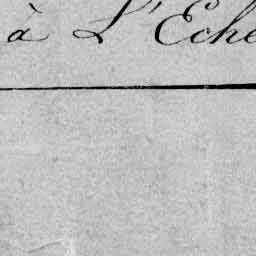 à L'Eche